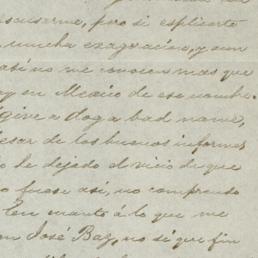 escusarme, pero si esplicarte
mucha exageracion, y aun
así no me conocen mas que
hay en Mexico de ese nombre.
"give a dog a bad name,
pesar de los buenos informes
he dejado el vicio de que
fuese así, no comprendo
En cuanto á lo que me
José Baz, no sé que fin